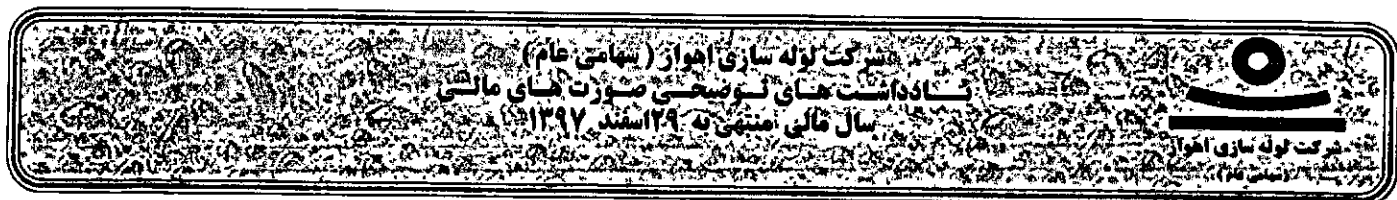 شرکت لوله سازی اهواز ( سهامی عام )
یادداشت های توضیحی صورت های مالی
سال مالی منتهی به ۲۹ اسفند ۱۳۹۷
شرکت لوله سازی اهواز
(سهامی عام)